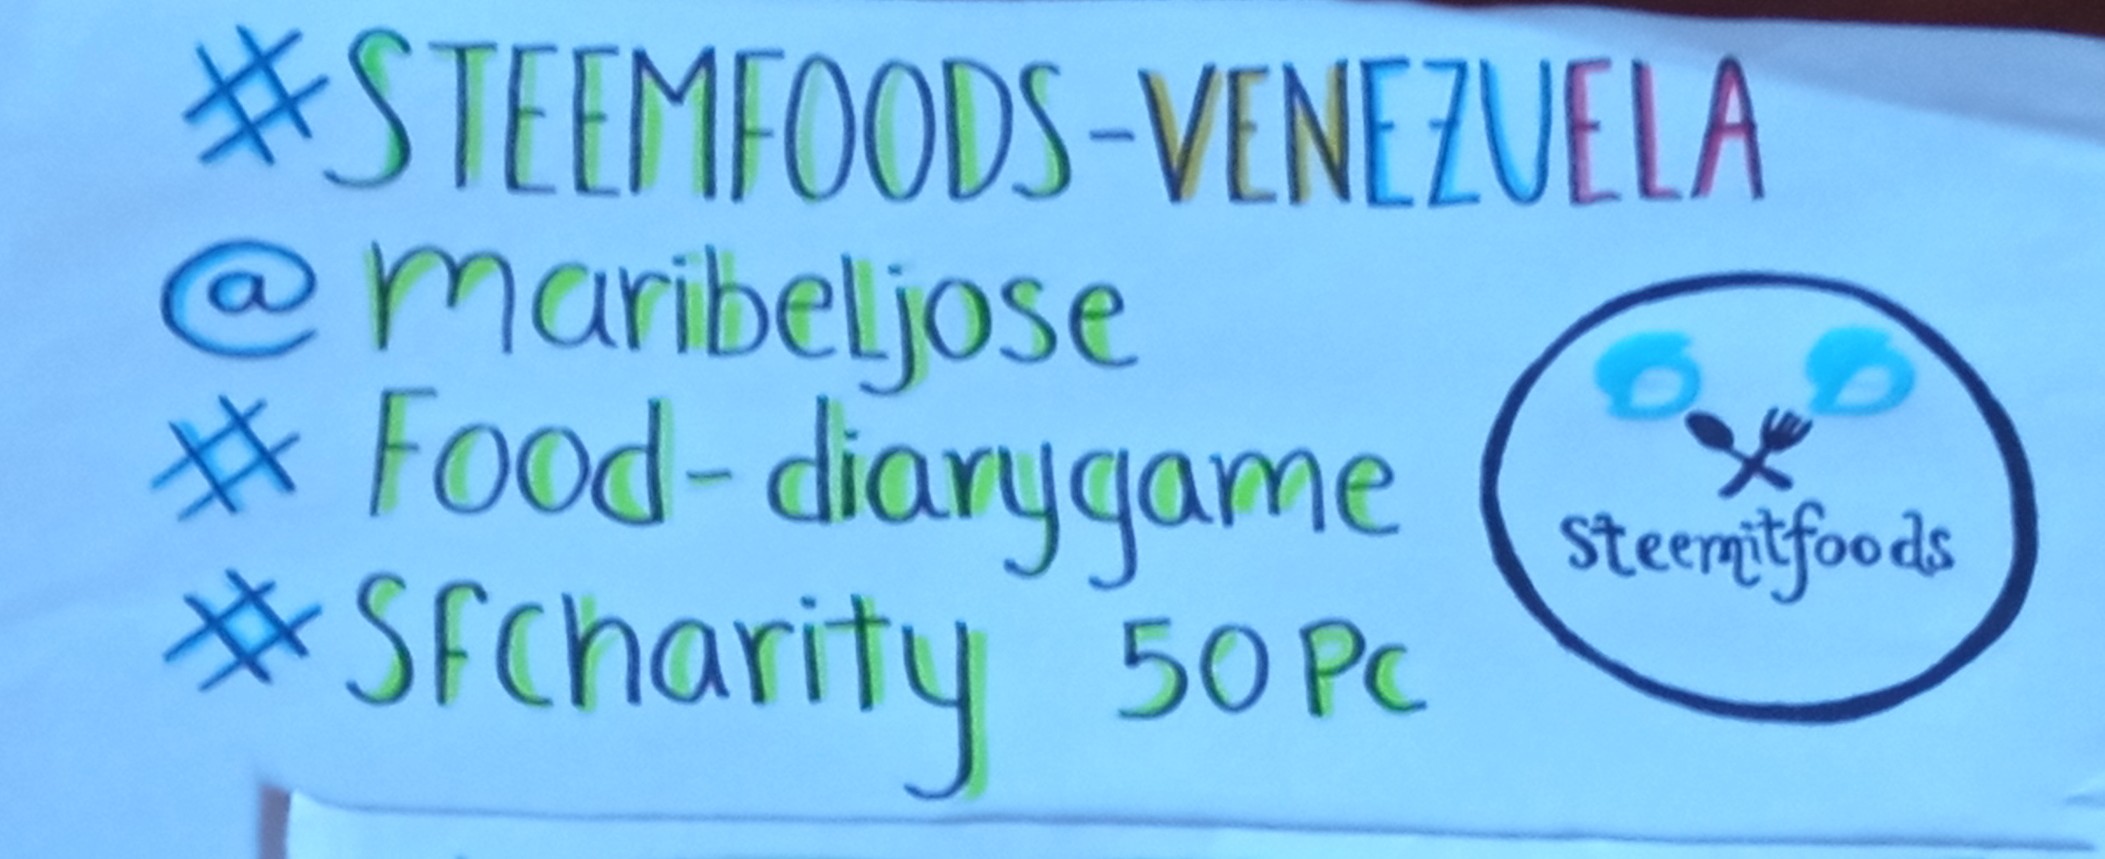 #STEEMFOODS-VENEZUELA
@maribeljose
# Food-diarygame
#Sfcharity 50 Pc
steemitfoods